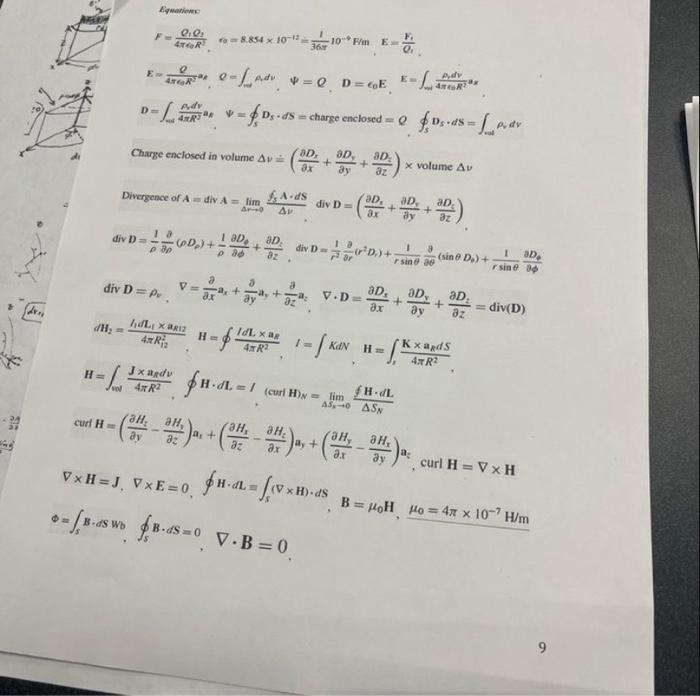 Equations:
F = Q₁Q₂/4πϵ₀R², ϵ₀ = 8.854 × 10⁻¹² ≐ 1/36π 10⁻⁹ F/m E = F₁/Q₁,
E = Q/4πϵ₀R² a_R, Q = ∫_vol ρ_v dv Ψ = Q, D = ϵ₀E, E = ∫_vol ρ_v dv/4πϵ₀R² a_R,
D = ∫_vol ρ_v dv/4πR² a_R Ψ = ∮_S D_S · dS = charge enclosed = Q ∮_S D_S · dS = ∫_vol ρ_v dv
Charge enclosed in volume Δv ≐ (∂D_x/∂x + ∂D_y/∂y + ∂D_z/∂z) × volume Δv
Divergence of A = div A = lim_Δv→0 ∮_S A · dS/Δv div D = (∂D_x/∂x + ∂D_y/∂y + ∂D_z/∂z)
div D = 1/ρ ∂/∂ρ (ρD_ρ) + 1/ρ ∂D_ϕ/∂ϕ + ∂D_z/∂z, div D = 1/r² ∂/∂r (r²D_r) + 1/r sin θ ∂/∂θ (sin θ D_θ) + 1/r sin θ ∂D_ϕ/∂ϕ
div D = ρ_v, ∇ = ∂/∂x a_x + ∂/∂y a_y + ∂/∂z a_z, ∇ · D = ∂D_x/∂x + ∂D_y/∂y + ∂D_z/∂z = div(D)
dH₂ = I₁dL₁ × a_R12/4πR₁₂² H = ∮ IdL × a_R/4πR² I = ∫ KdN H = ∫_s K × a_R dS/4πR²
H = ∫_vol J × a_R dv/4πR² ∮ H · dL = I (curl H)_N = lim_ΔS_N→0 ∮ H · dL/ΔS_N
curl H = (∂H_z/∂y − ∂H_y/∂z) a_x + (∂H_x/∂z − ∂H_z/∂x) a_y + (∂H_y/∂x − ∂H_x/∂y) a_z, curl H = ∇ × H
∇ × H = J, ∇ × E = 0, ∮ H · dL = ∫_S (∇ × H) · dS, B = μ₀H, μ₀ = 4π × 10⁻⁷ H/m
Φ = ∫_S B · dS Wb, ∮_S B · dS = 0, ∇ · B = 0,
9